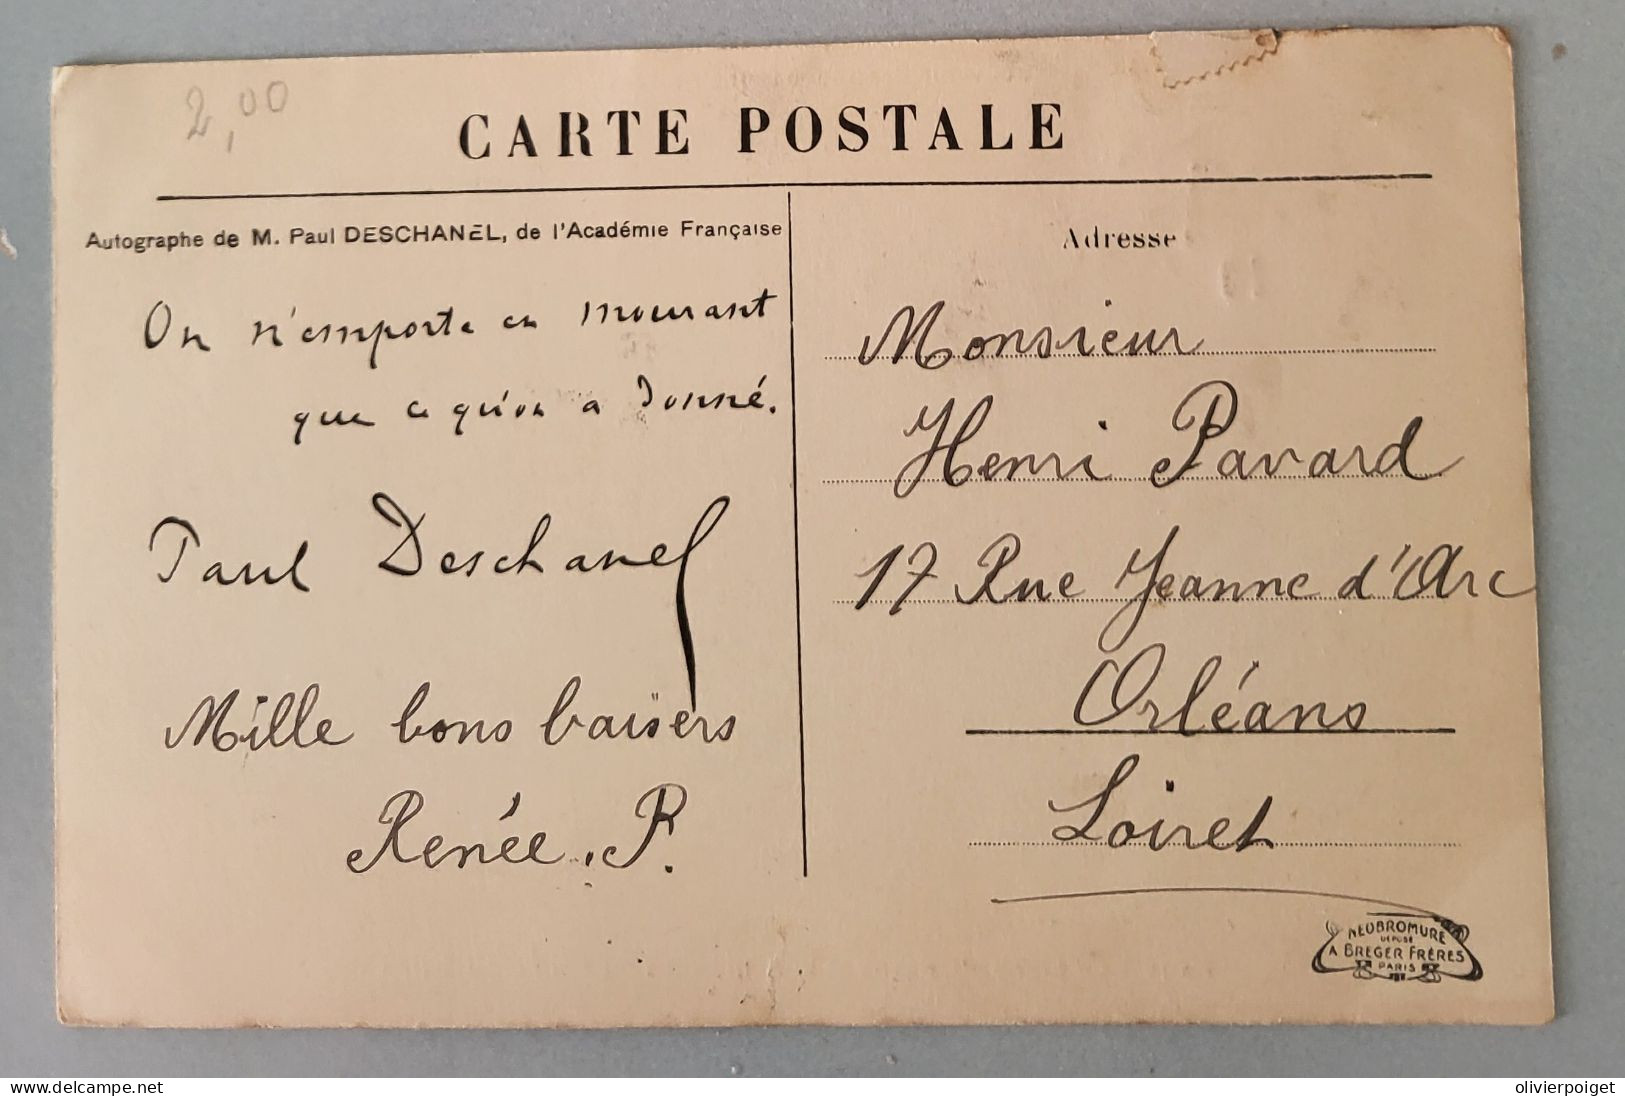 2,00
CARTE POSTALE
Autographe de M. Paul DESCHANEL, de l'Académie Française
On n'emporte en mourant
que ce qu'on a donné.
Paul Deschanel
Mille bons baisers
Renée. P.
Adresse
Monsieur
Henri Pavard
17 Rue Jeanne d'Arc
Orléans
Loiret
NEOBROMURE
DÉPOSÉ
A BREGER FRÈRES
PARIS
delcampe.net
olivierpoiget